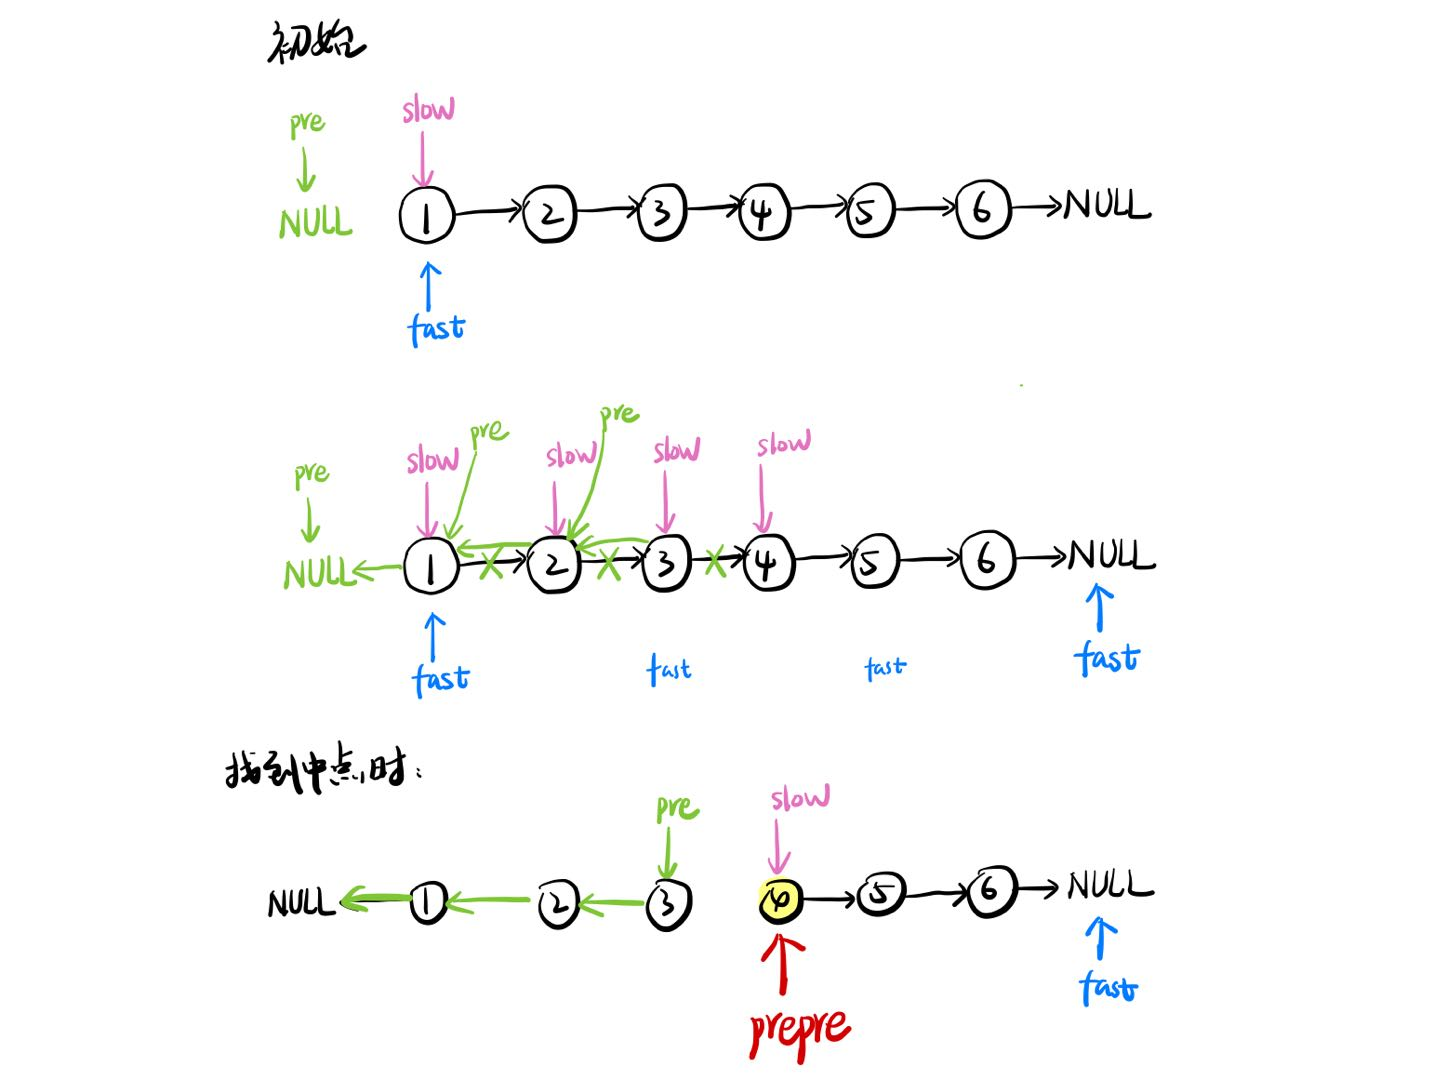 初始
pre
slow
NULL 1 2 3 4 5 6 NULL
fast
pre slow pre slow pre slow slow
NULL 1 2 3 4 5 6 NULL
fast fast fast fast
找到中点时：
pre slow
NULL 1 2 3 4 5 6 NULL
fast
prepre